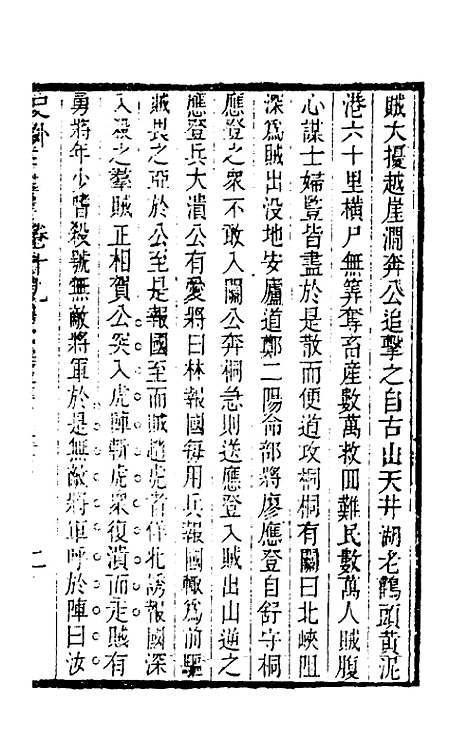 賊大擾越崖澗奔公追擊之自古山天井湖老鸛頭黃泥
港六十里橫尸無筭奪畜産數萬救回難民數萬人賊腹
心謀士婦豎皆盡於是散而便道攻桐桐有關曰北峽阻
深爲賊出没地安廬道鄭二陽命部將廖應登自舒守桐
應登之衆不敢入關公奔桐急則送應登入賊出山逆之
應登兵大潰公有愛將曰林報國每用兵報國輙爲前驅
賊畏之亞於公至是報國至而賊趙虎者佯北誘報國深
入殺之羣賊正相賀公突入虎陣斬虎衆復潰而走賊有
勇將年少嗜殺號無敵將軍於是無敵將軍呼於陣曰汝